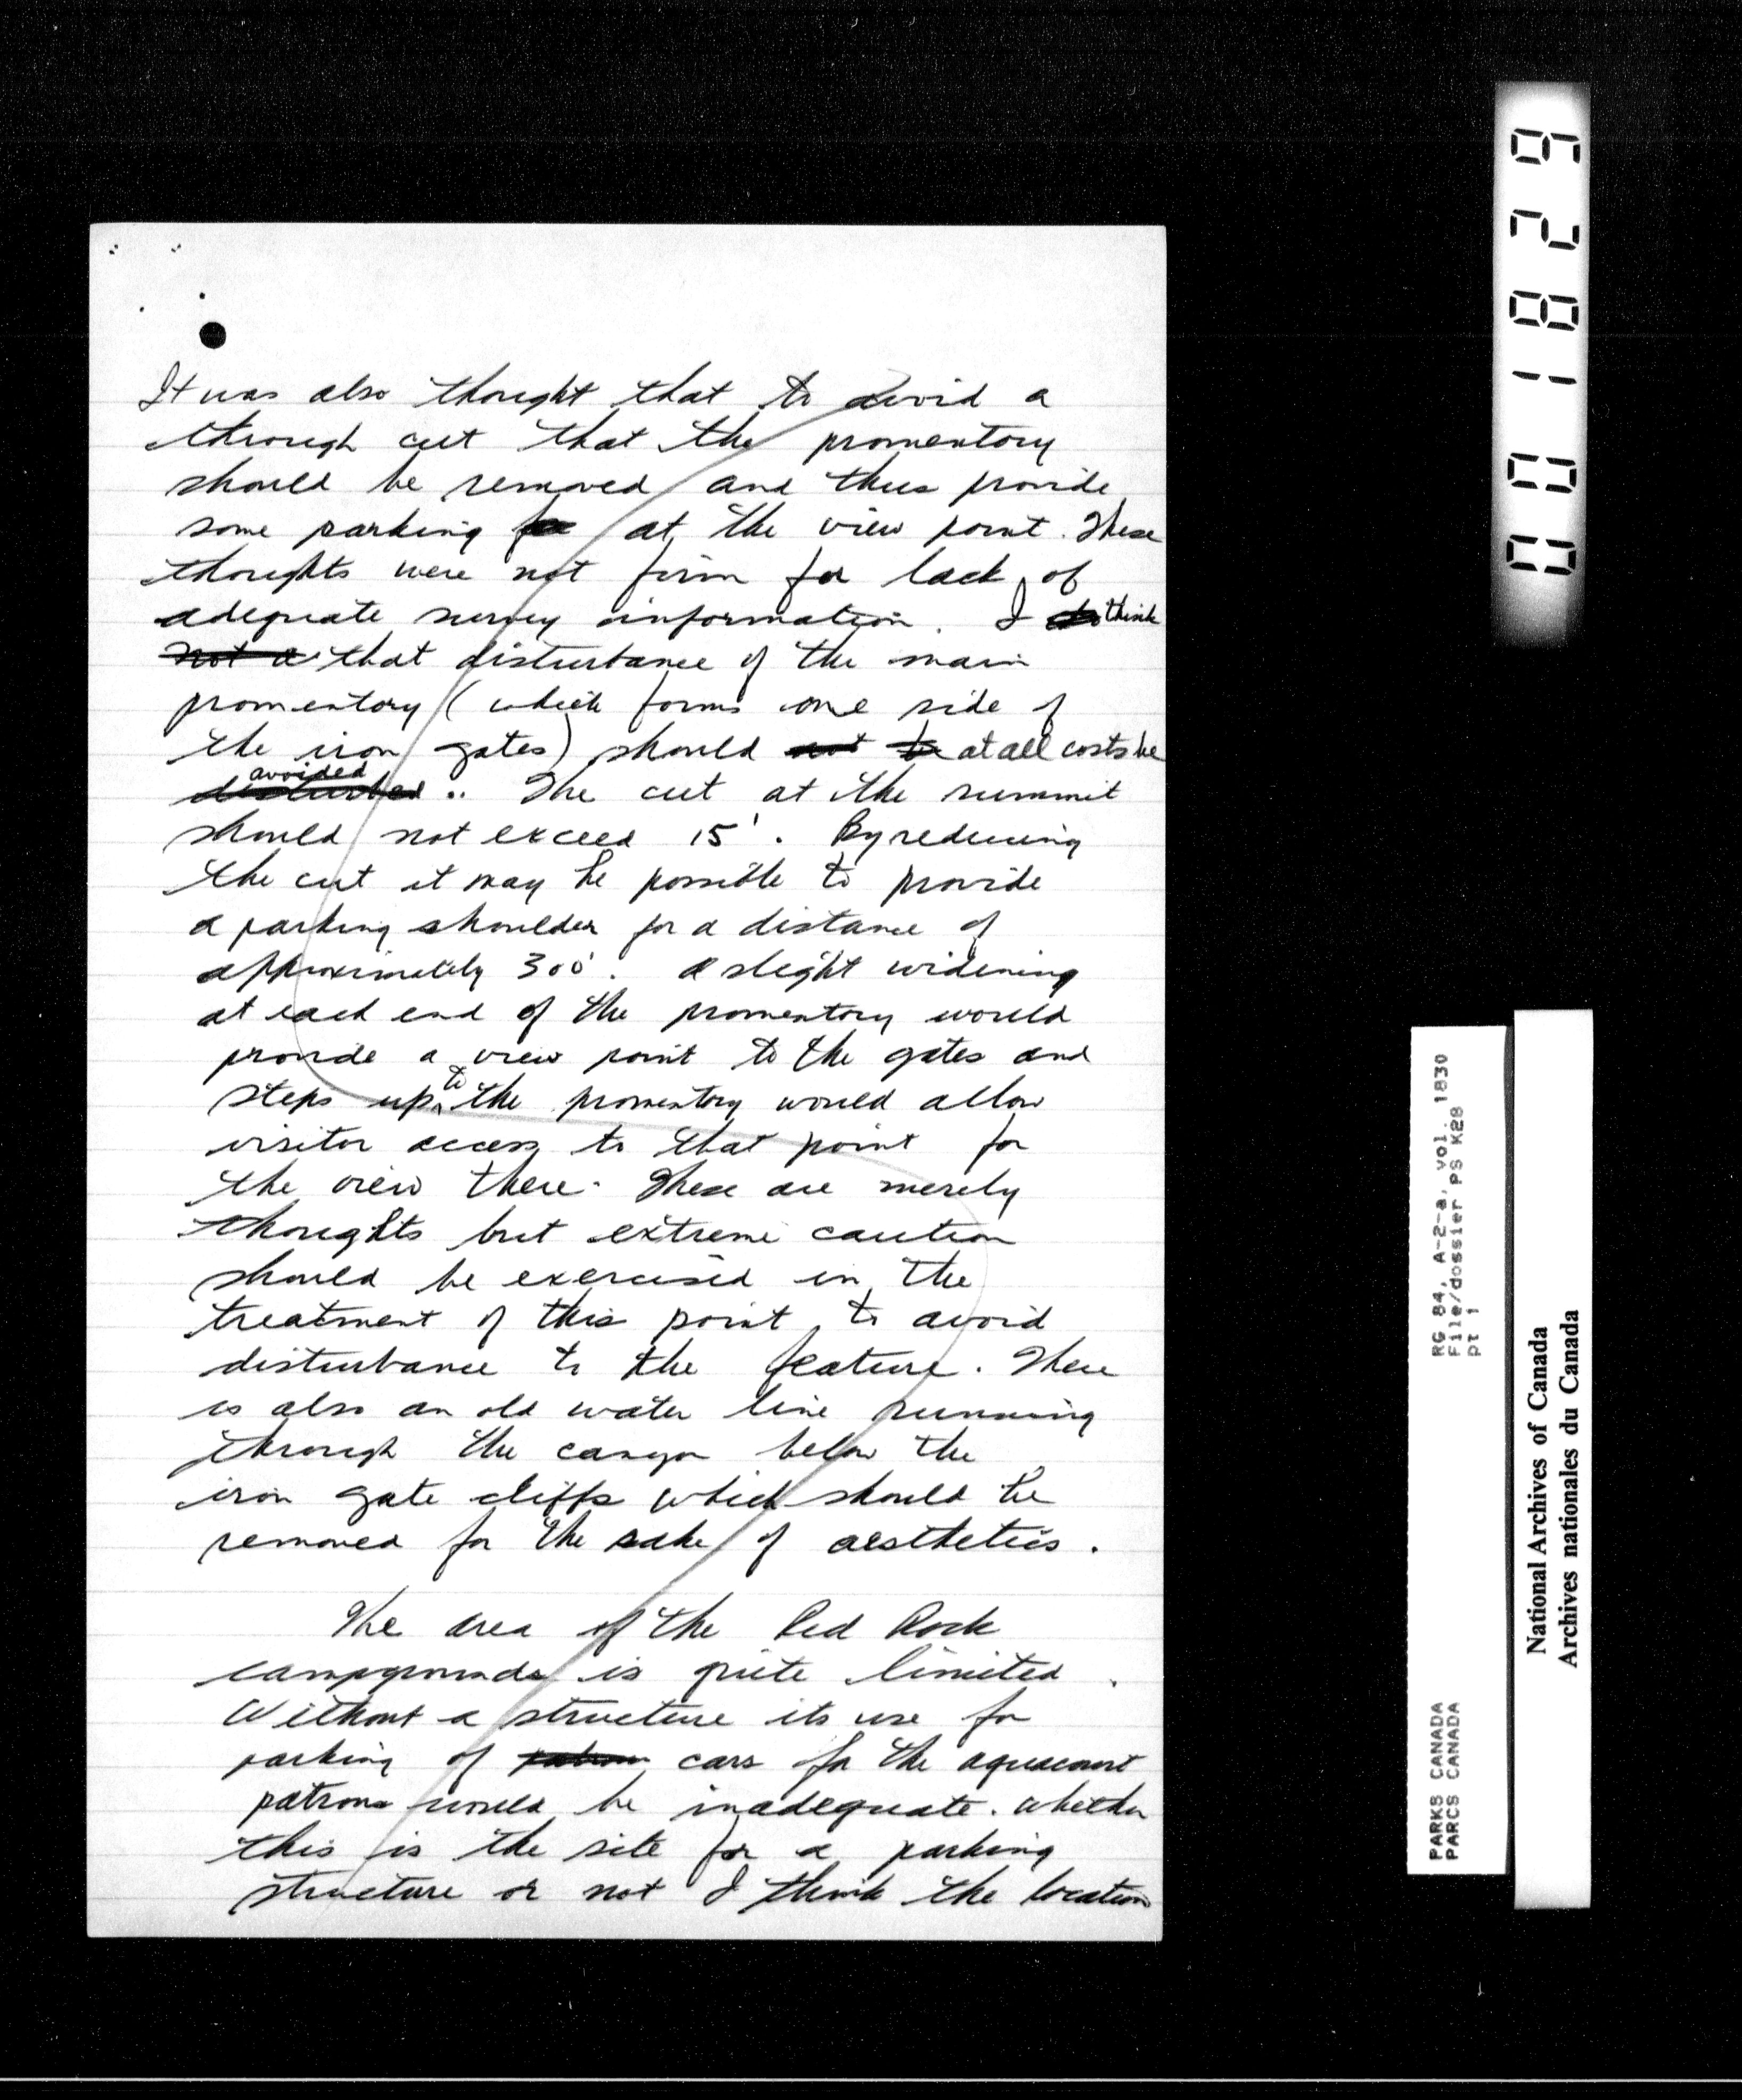 It was also thought that to avoid a
through cut that the promentory
should be removed and thus provide
some parking at the view point. These
thoughts were not firm for lack of
adequate survey information. I do think
not a that disturbance of the main
promentory (which forms one side of
the iron gates) should not be at all costs be
avoided
disturbed .. The cut at the summit
should not exceed 15'. By reducing
the cut it may be possible to provide
a parking shoulder for a distance of
approximately 300'. A slight widening
at each end of the promentory would
provide a view point to the gates and
steps up to the promentory would allow
visitor access to that point for
the view there. These are merely
thoughts but extreme caution
should be exercised in the
treatment of this point to avoid
disturbance to the feature. There
is also an old water line running
through the canyon below the
iron gate cliffs which should be
removed for the sake of aesthetics.
The area of the Red Rock
campgrounds is quite limited.
Without a structure its use for
parking of patron cars for the aquacourt
patrons would be inadequate. Whether
this is the site for a parking
structure or not I think the location
001829
RG 84, A-2-a, vol. 1830
File/dossier PS K28
pt 1
PARKS CANADA
PARCS CANADA
National Archives of Canada
Archives nationales du Canada